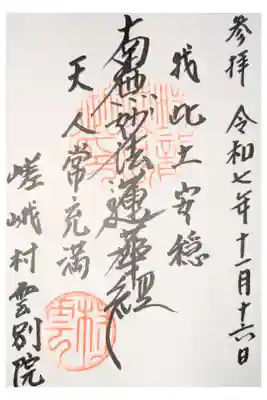 参拝 令和七年十一月十六日
我此土安穏
南無妙法蓮華経
天人常充満
嵯峨村雲別院